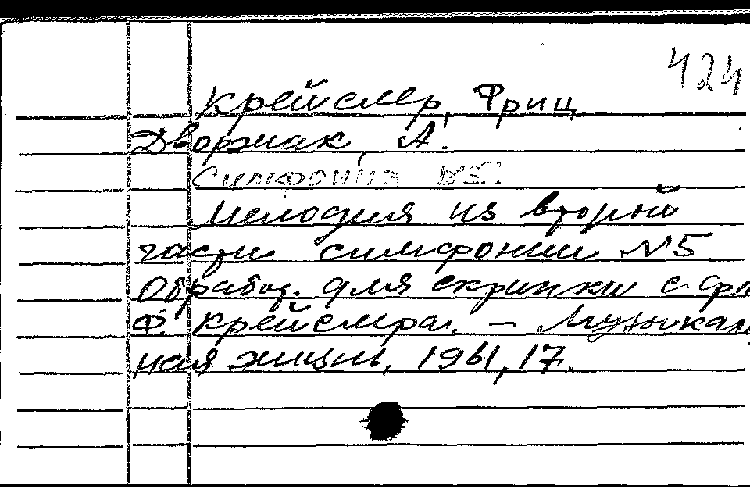 424
Крейслер, Фриц
Дворжак, А.
Симфония №5.
Мелодия из второй
части симфонии №5
Обработ. для скрипки с фо
Ф. Крейслера. – Музыкаль
ная жизнь, 1961, 17.